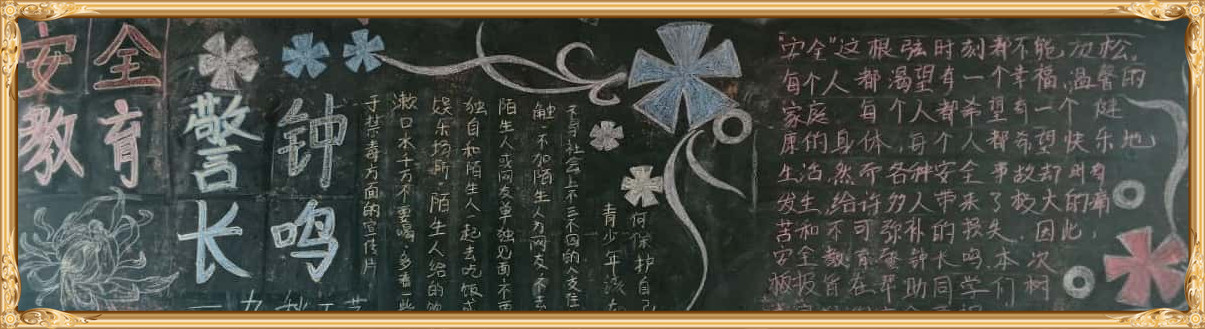 安全
教育
警钟
长鸣
青少年该
何保护自己
不与社会上不三不四的人交往
触,不加陌生人为网友,不去
陌生人或网友单独见面不要
独自和陌生人一起去吃饭或
娱乐场所,陌生人给的饮
漱口水千万不要喝,多看一些
于禁毒方面的宣传片
"安全"这根弦时刻都不能放松,
每个人都渴望有一个幸福,温馨的
家庭 每个人都希望有一个健
康的身体,每个人都希望快乐地
生活,然而各种安全事故却时有
发生,给许多人带来了极大的痛
苦和不可弥补的损失,因此,
安全教育警钟长鸣,本次
板报旨在帮助同学们树